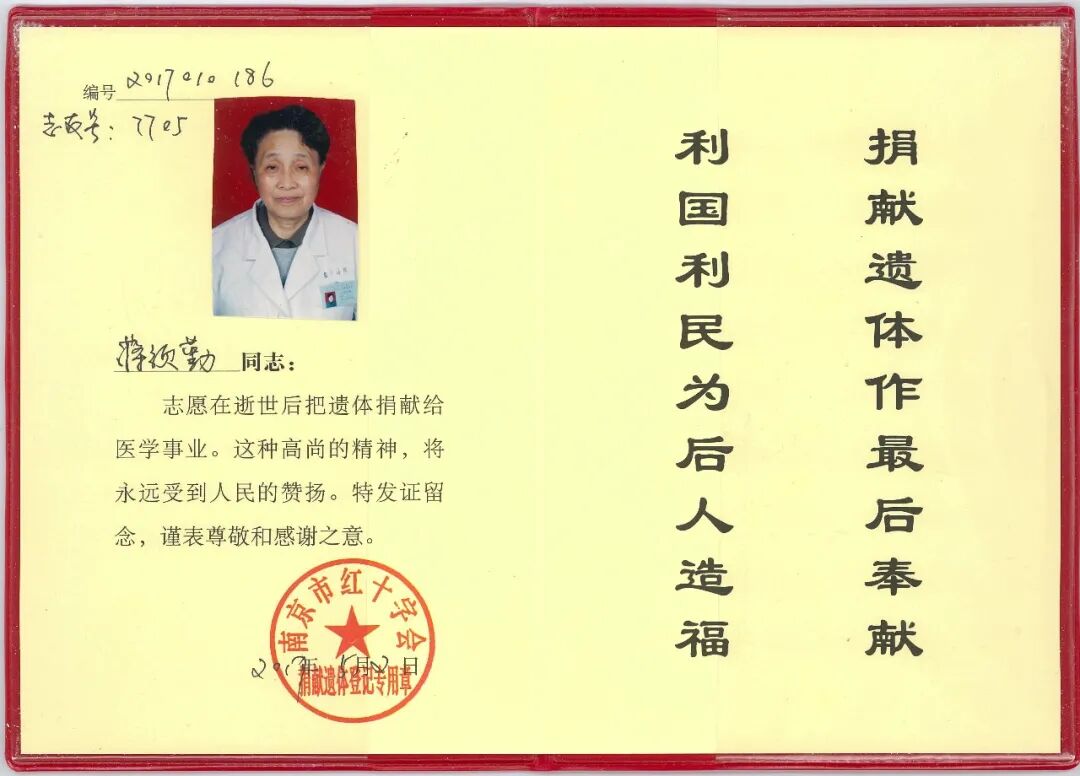 编号 2017010186
志愿号：7705
蒋须勤 同志：
志愿在逝世后把遗体捐献给
医学事业。这种高尚的精神，将
永远受到人民的赞扬。特发证留
念，谨表尊敬和感谢之意。
南京市红十字会
2017年 月 日
捐献遗体登记专用章
捐献遗体作最后奉献
利国利民为后人造福